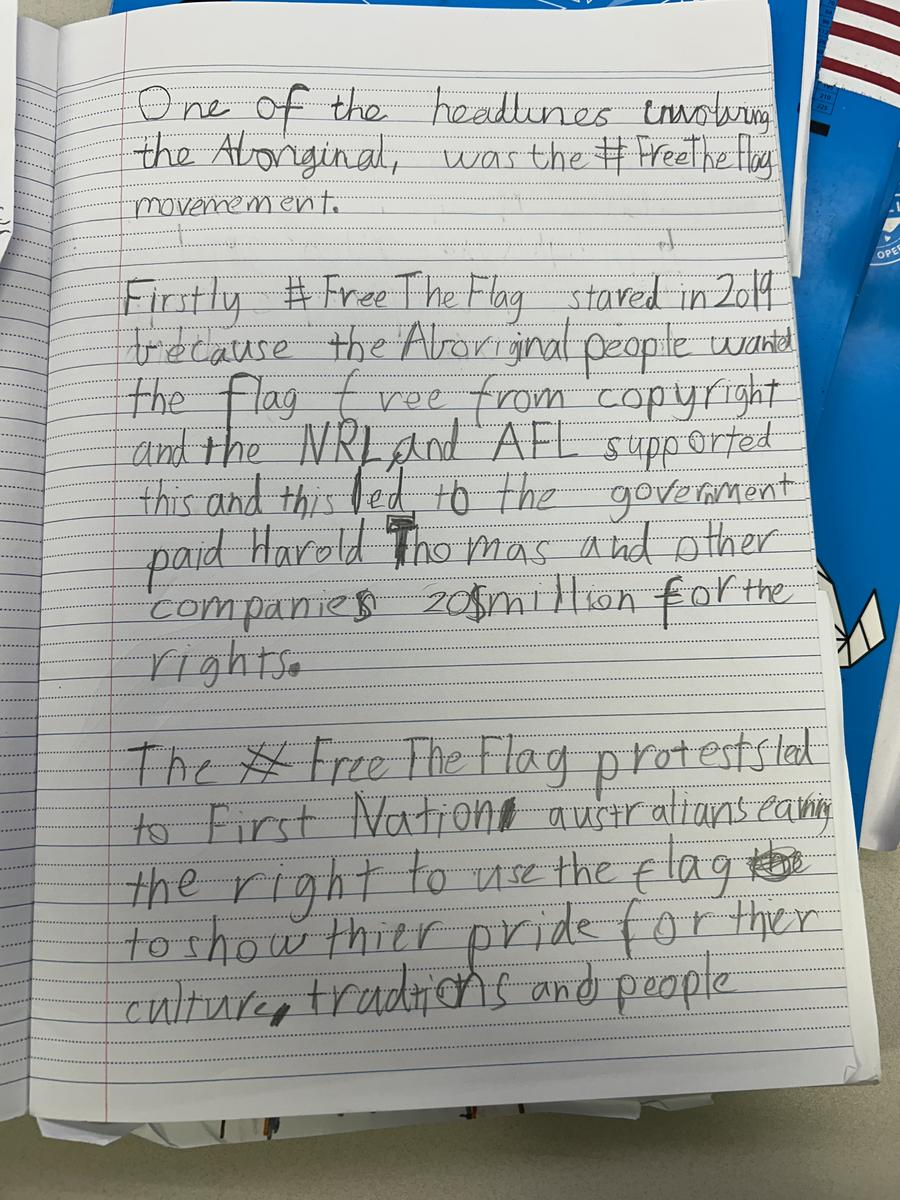 One of the headlines involving
the Aboriginal, was the #FreeTheFlag
movemement.
Firstly #FreeTheFlag stared in 2019
because the Aborignal people wanted
the flag free from copyright
and the NRL and AFL supported
this and this led to the government
paid Harold Thomas and other
companies 20$million for the
rights.
The #FreeTheFlag protests led
to First Nation australians earing
the right to use the flag
to show thier pride for ther
culture, tradtions and people
OPE